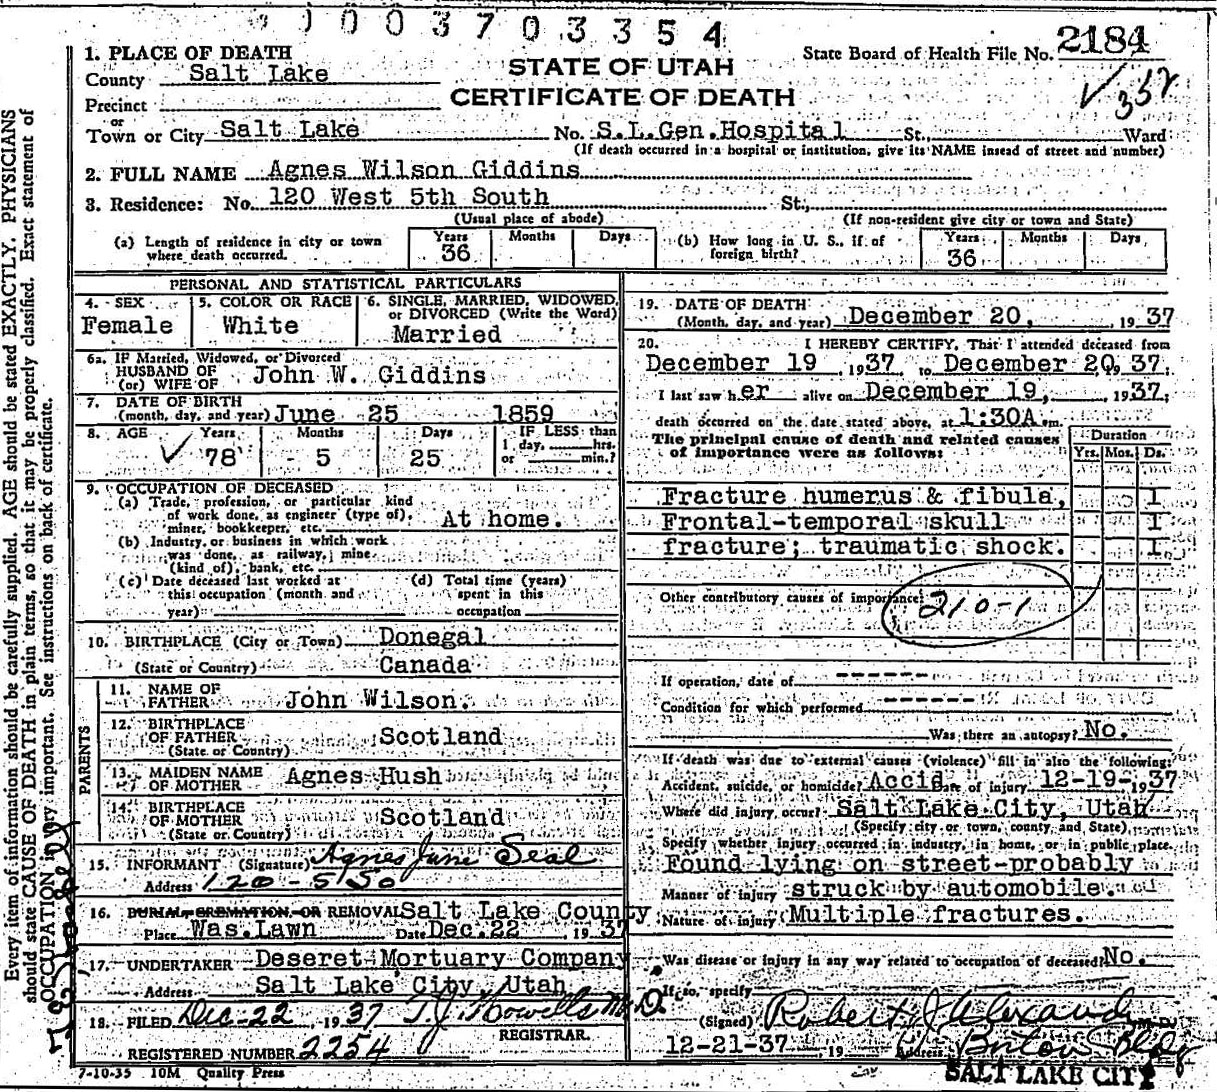 1003703354
1. PLACE OF DEATH
County Salt Lake
STATE OF UTAH
State Board of Health File No. 2184
Precinct
CERTIFICATE OF DEATH
or
Town or City Salt Lake No. S.L.Gen.Hospital St., Ward
(If death occurred in a hospital or institution, give its NAME insead of street and number)
2. FULL NAME Agnes Wilson Giddins
3. Residence: No. 120 West 5th South St.,
(Usual place of abode) (If non-resident give city or town and State)
(a) Length of residence in city or town where death occurred. Years 36 Months Days
(b) How long in U. S., if of foreign birth? Years 36 Months Days
PERSONAL AND STATISTICAL PARTICULARS
4. SEX Female
5. COLOR OR RACE White
6. SINGLE, MARRIED, WIDOWED, or DIVORCED (Write the Word) Married
6a. IF Married, Widowed, or Divorced
HUSBAND OF
(or) WIFE OF John W. Giddins
7. DATE OF BIRTH
(month, day, and year) June 25 1859
8. AGE Years 78 Months 5 Days 25 IF LESS than 1 day, hrs. or min.?
9. OCCUPATION OF DECEASED
(a) Trade, profession, or particular kind
of work done, as engineer (type of),
miner, bookkeeper, etc. At home.
(b) Industry, or business in which work
was done, as railway, mine
(kind of), bank, etc.
(c) Date deceased last worked at
this occupation (month and
year)
(d) Total time (years)
spent in this
occupation
10. BIRTHPLACE (City or Town) Donegal
(State or Country) Canada
PARENTS
11. NAME OF
FATHER John Wilson.
12. BIRTHPLACE
OF FATHER Scotland
(State or Country)
13. MAIDEN NAME
OF MOTHER Agnes Hush
14. BIRTHPLACE
OF MOTHER Scotland
(State or Country)
15. INFORMANT (Signature) Agnes June Seal
Address 120 - 5 So
16. BURIAL, CREMATION, OR REMOVAL Salt Lake County
Place Was. Lawn Date Dec. 22, 1937
17. UNDERTAKER Deseret Mortuary Company
Address Salt Lake City, Utah
18. FILED Dec-22 1937 T.J. Howells M.D.
REGISTRAR.
REGISTERED NUMBER 2254
7-10-35 10M Quality Press
19. DATE OF DEATH
(Month, day, and year) December 20, 1937
20. I HEREBY CERTIFY, That I attended deceased from
December 19, 1937 to December 20, 1937.
I last saw her alive on December 19, 1937,
death occurred on the date stated above, at 1:30A m.
The principal cause of death and related causes
of importance were as follows:
Duration
Yrs. Mos. Ds.
Fracture humerus & fibula, 1
Frontal-temporal skull 1
fracture; traumatic shock. 1
Other contributory causes of importance:
210-1
If operation, date of ------
Condition for which performed ------
Was there an autopsy? No.
If death was due to external causes (violence) fill in also the following:
Accident, suicide, or homicide? Accid Date of injury 12-19-1937
Where did injury occur? Salt Lake City, Utah
(Specify city or town, county, and State)
Specify whether injury occurred in industry, in home, or in public place.
Found lying on street-probably
Manner of injury struck by automobile.
Nature of injury Multiple fractures.
Was disease or injury in any way related to occupation of deceased? No.
If so, specify
(Signed) Robert J Alexander M. D.
12-21-37, 19 Address Bldg
SALT LAKE CITY
Every item of information should be carefully supplied. AGE should be stated EXACTLY. PHYSICIANS
should state CAUSE OF DEATH in plain terms, so that it may be properly classified. Exact statement of
OCCUPATION is very important. See instructions on back of certificate.